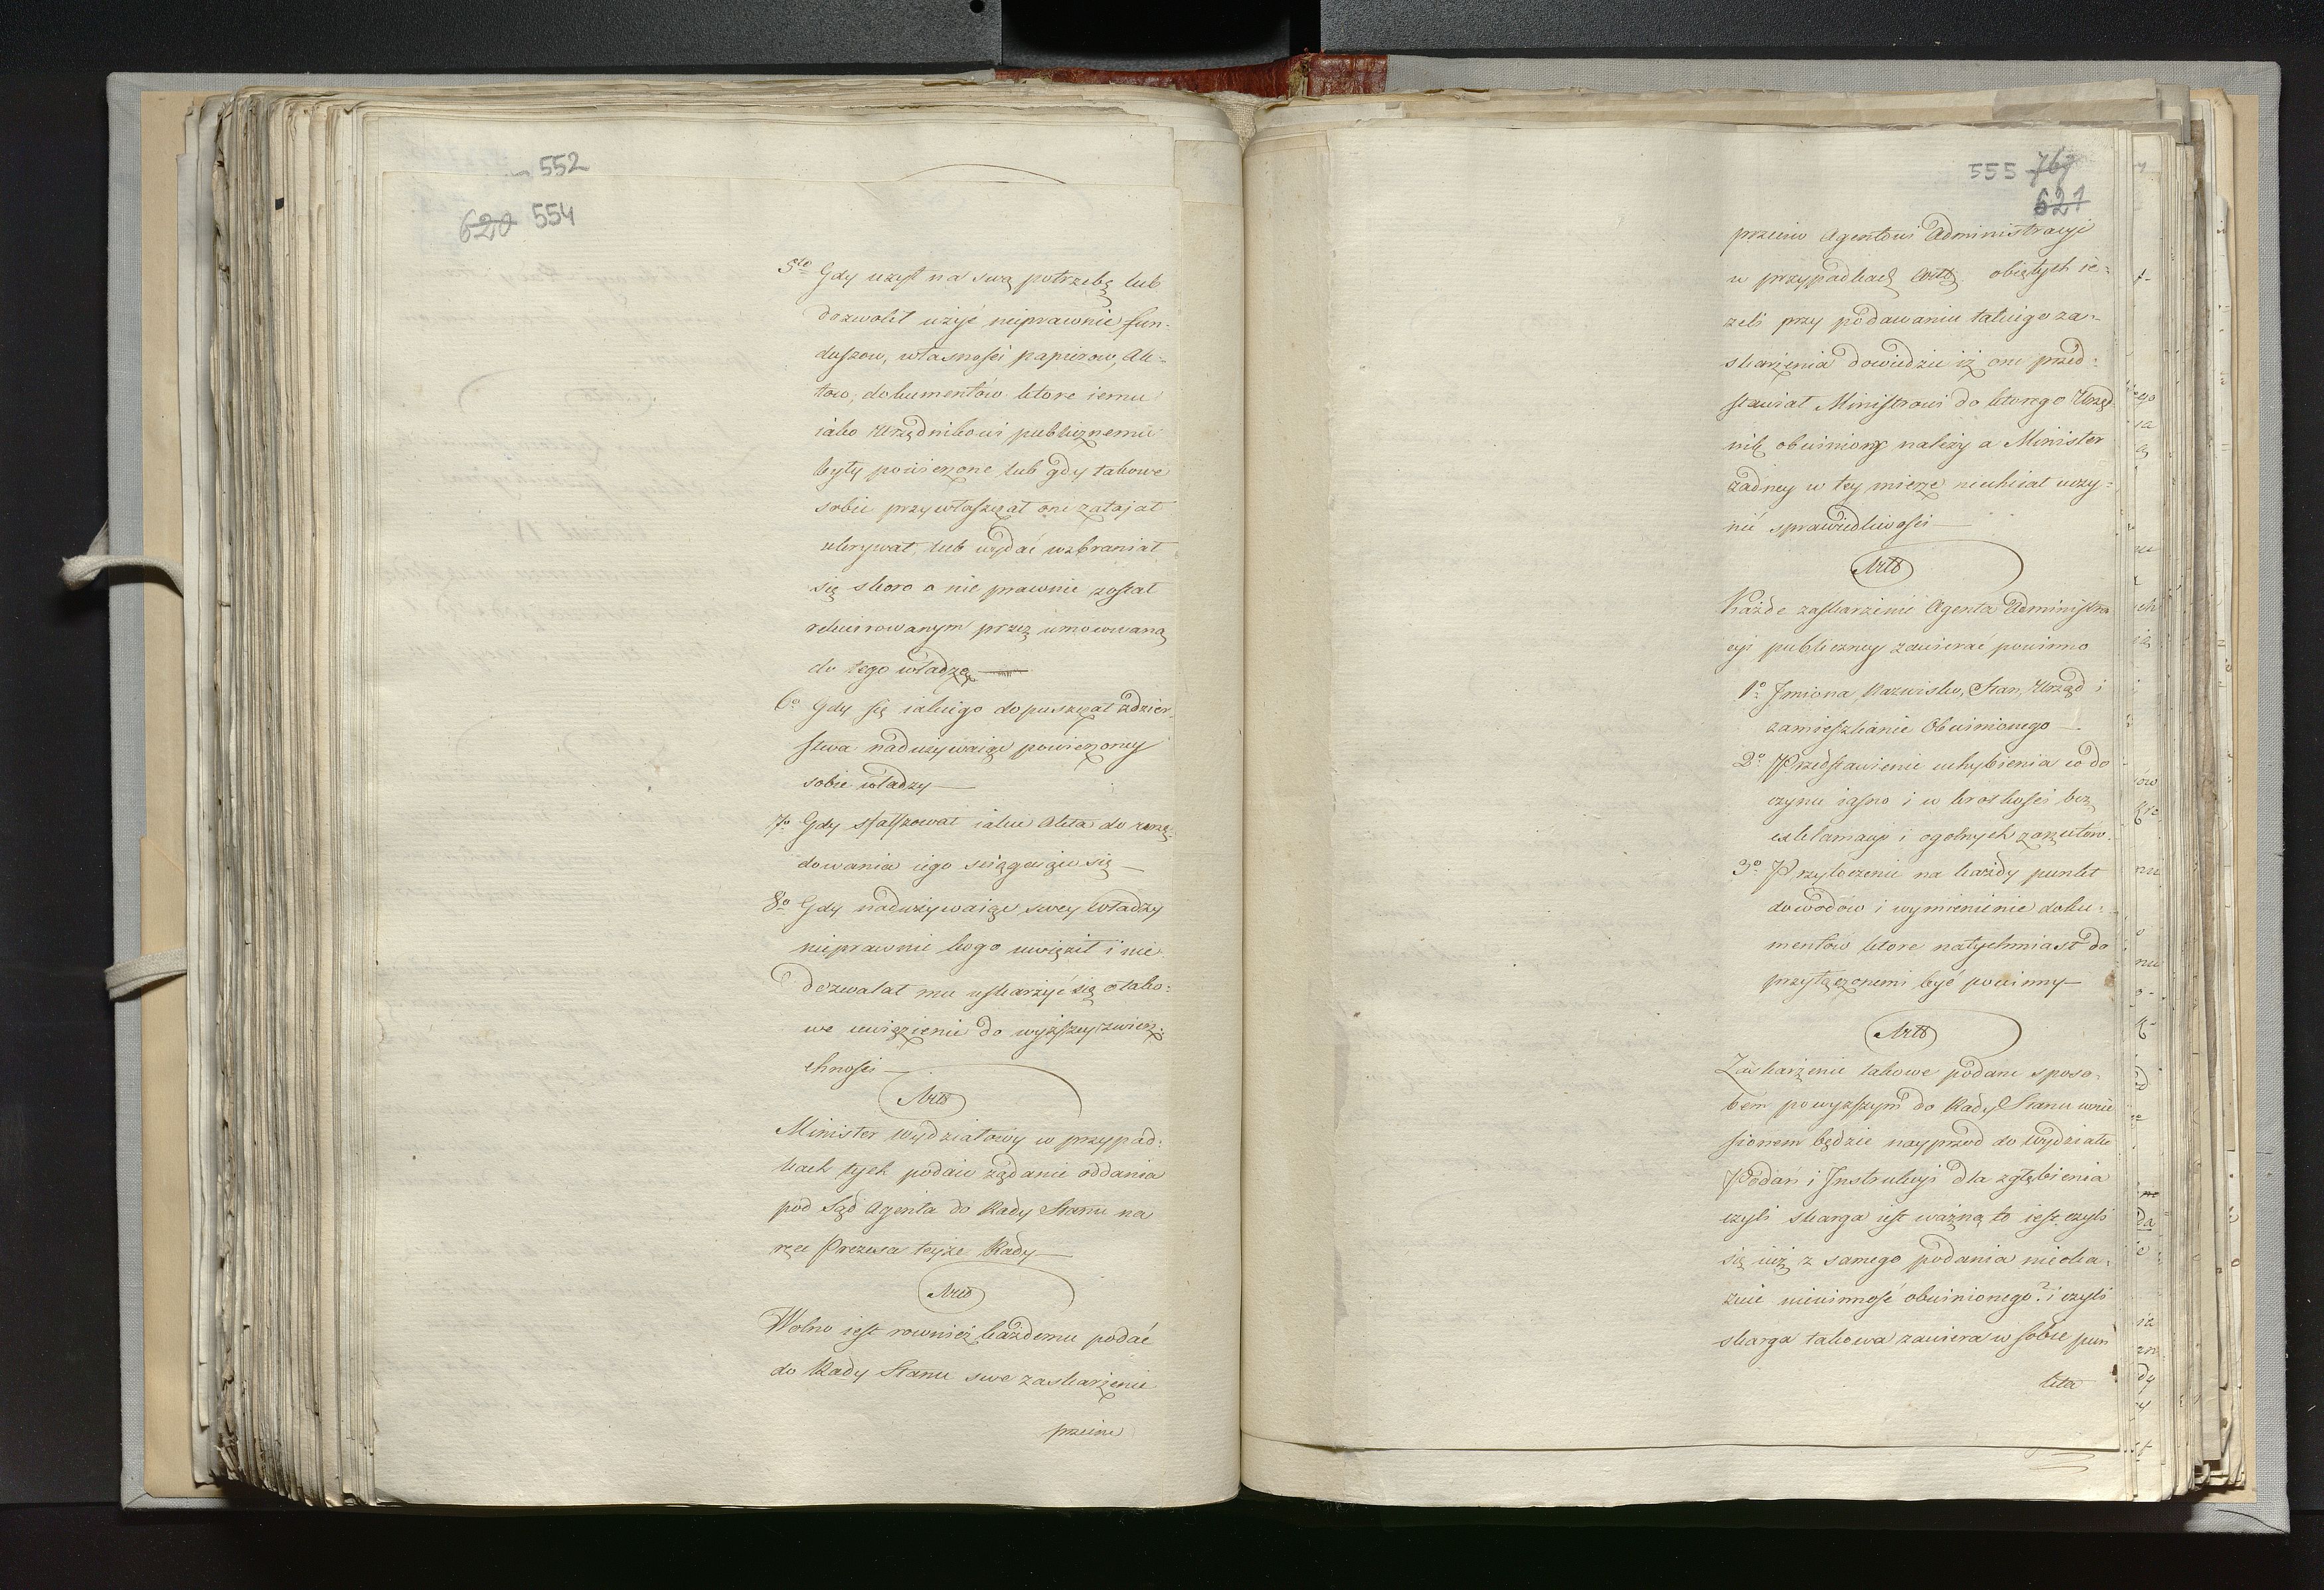 552
620 554
5to Gdy uzył na swą potrzebę lub
dozwolił użyć nieprawnie fun-
duszow, własności papierow, Ak-
tow, dokumentów ktore iemu
iako Urzędnikowi publicznemu
były powierzone lub gdy takowe
sobie przywłaszczał one zatajał
ukrywał, lub wydać wzbraniał
się skoro o nie prawnie został
rekwirowanym przez umocowaną
do tego władzę
6o Gdy się iakiego dopuszczał zdzier-
stwa nadużywaiąc powierzoney
sobie władzy
7o Gdy sfałszował iakie Akta do urzę-
dowania iego sciągaiące się
8o Gdy nadużywaiąc swey władzy
nieprawnie kogo uwięził i nie
dozwalał mu uskarżyć się o tako-
we uwięzienie do wyższey zwierz-
chności
Artt
Minister wydziałowy w przypad-
kach tych podaie żądanie oddania
pod Sąd Agenta do Rady Stanu na
ręce Prezesa teyże Rady
Artt
Wolno iest rownież każdemu podać
do Rady Stanu swe zaskarżenie
przeciw
555 767
621
przeciw Agentowi Administracyi
w przypadkach Artt. obiętych ie-
żeli przy podawaniu takiego za-
skarżenia dowiedzie iż one przed-
stawiał Ministrowi do ktorego Urzęd-
nik obwiniony należy a Minister
żadney w tey mierze niechciał uczy-
nić sprawiedliwości
Artt
Każde zaskarżenie Agenta Administra
cyi publiczney zawierać powinno
1o Jmiona, Nazwisko, Stan, Urząd i
zamieszkanie Obwinionego
2o Przedstawienie uchybienia co do
czynu iasno i w krotkości bez
exklamacyi i ogolnych zarzutów.
3o Przytoczenie na każdy punkt
dowodów i wymienienie doku-
mentów ktore natychmiast do
przyłączonemi być powinny
Artt
Zaskarżenie takowe podane sposo-
bem powyższym do Rady Stanu wnie
sionem będzie nayprzod do Wydziału
Podań i Jnstrukcyi dla zgłębienia
czyli skarga iest ważną to iest czyli
się iuż z samego podania nieoka-
zuie niewinność obwinionego? i czyli
skarga takowa zawiera w sobie pun
kta